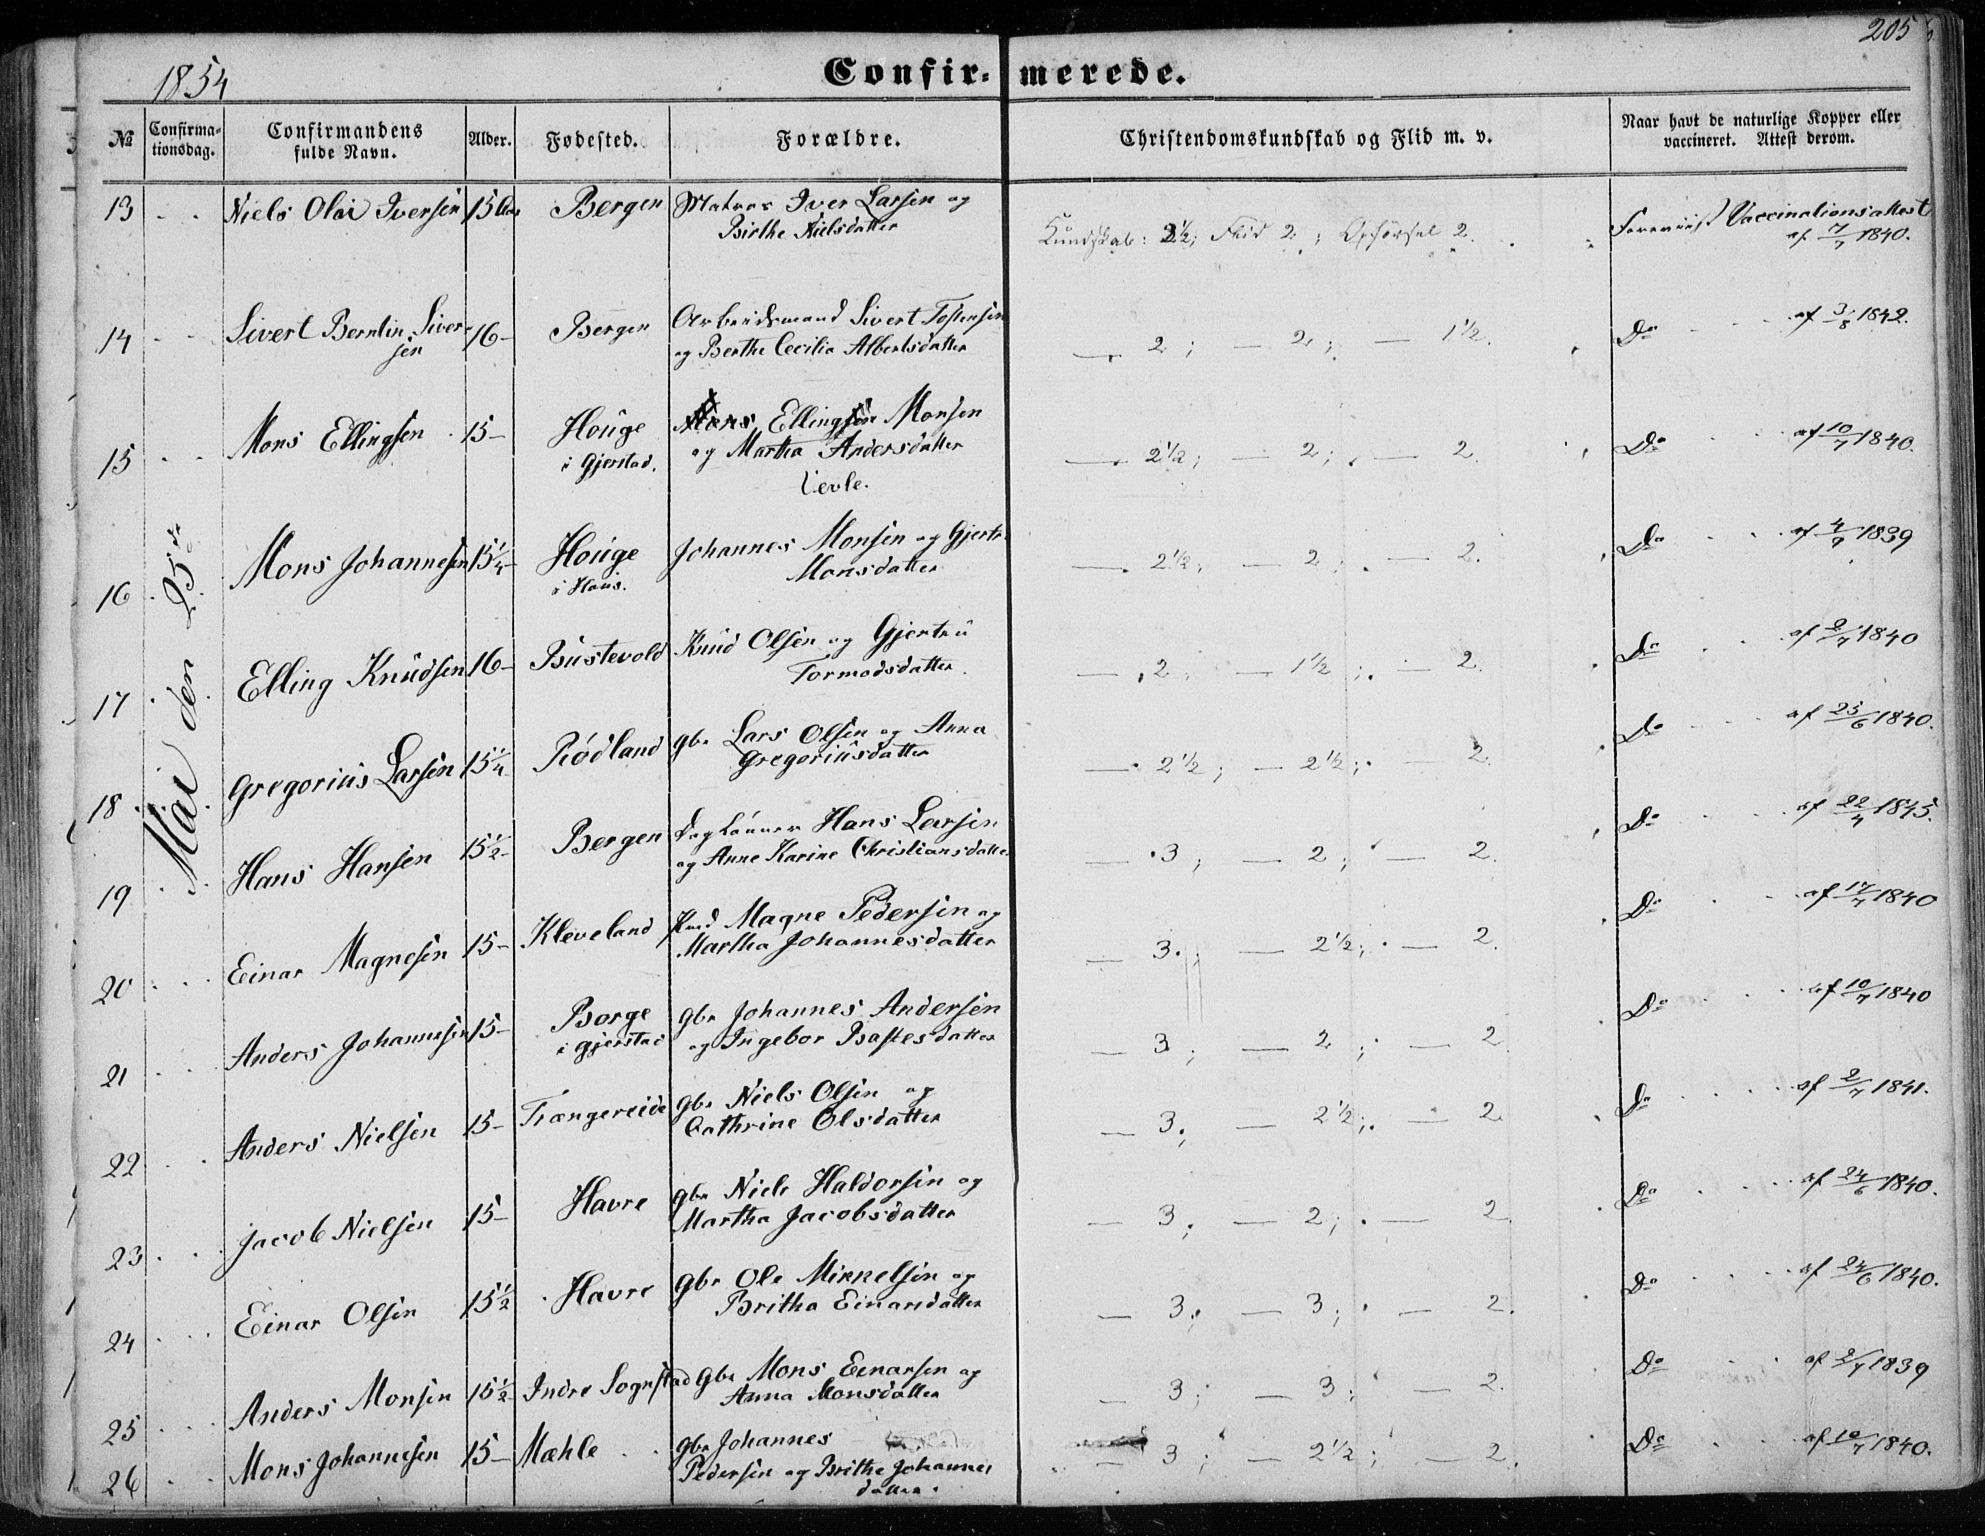 205
1854
Confir- merede.
№ Confirma-tionsdag. Confirmandens fulde Navn. Alder. Fødested. Forældre. Christendomskundskab og Flid m. v. Naar havt de naturlige Kopper eller vaccineret. Attest derom.
Mai den 25de
13 Niels Olai Iversen 15 Aar Bergen Matros Iver Larsen og Kundskab: 2½; Flid 2; Opførsel 2. Foreviist Vaccinationsattest
Birthe Nielsdatter af 7/7 1840.
14 Sivert Berntin Siver- 16 - Bergen Arbeidsmand Sivert Tostensen — 2; — 2; — 1½. Do af 3/8 1842.
sen og Berthe Cecilia Albertsdatter
15 Mons Ellingsen 15 - Houge Elling Monsen — 2½; — 2; — 2. Do af 10/7 1840.
i Gjerstad. og Martha Andersdatter
Levle.
16 Mons Johannesen 15¼ - Houge Johannes Monsen og Gjertr. — 2½; — 2; — 2. Do af 4/7 1839
i Haus. Monsdatter
17 Elling Knudsen 16 - Bustevold Knud Olsen og Gjertru — 2; — 1½; — 2. Do af 2/7 1840
Tormodsdatter
18 Gregorius Larsen 15¼ - Rødland gbr Lars Olsen og Anna — 2½; — 2½; — 2. Do af 25/6 1840.
Gregoriusdatter
19 Hans Hansen 15½ - Bergen Daglønner Hans Larsen — 3; — 2; — 2. Do af 22/4 1845.
og Anne Karine Christiansdatter
20 Einar Magnesen 15 - Kleveland Hmd Magne Pedersen og — 3; — 2½; — 2. Do af 17/7 1840
Martha Johannesdatter
21 Anders Johannesen 15 - Borge gbr Johannes Andersen — 3; — 2; — 2. Do af 10/7 1840
i Gjerstad og Ingebor Baftesdatter
22 Anders Nielsen 15 - Trængereide gbr Niels Olsen og — 3; — 2½; — 2. Do af 2/7 1841.
Cathrine Olsdatter
23 Jacob Nielsen 15 - Havre gbr Niels Haldorsen og — 3; — 2; — 2. Do af 24/6 1840.
Martha Jacobsdatter
24 Einar Olsen 15½ Havre gbr Ole Mikkelsen og — 3; — 3; — 2. Do af 24/6 1840.
Britha Einarsdatter
25 Anders Monsen 15½ - Indre Sognstad gbr Mons Einarsen og — 3; — 3; — 2. Do af 2/7 1839
Anna Monsdatter
26 Mons Johannesen 15 - Mæhle gbr Johannes — 3; — 2½; — 2. Do af 10/7 1840.
Pedersen og Brithe Johannes
datter.